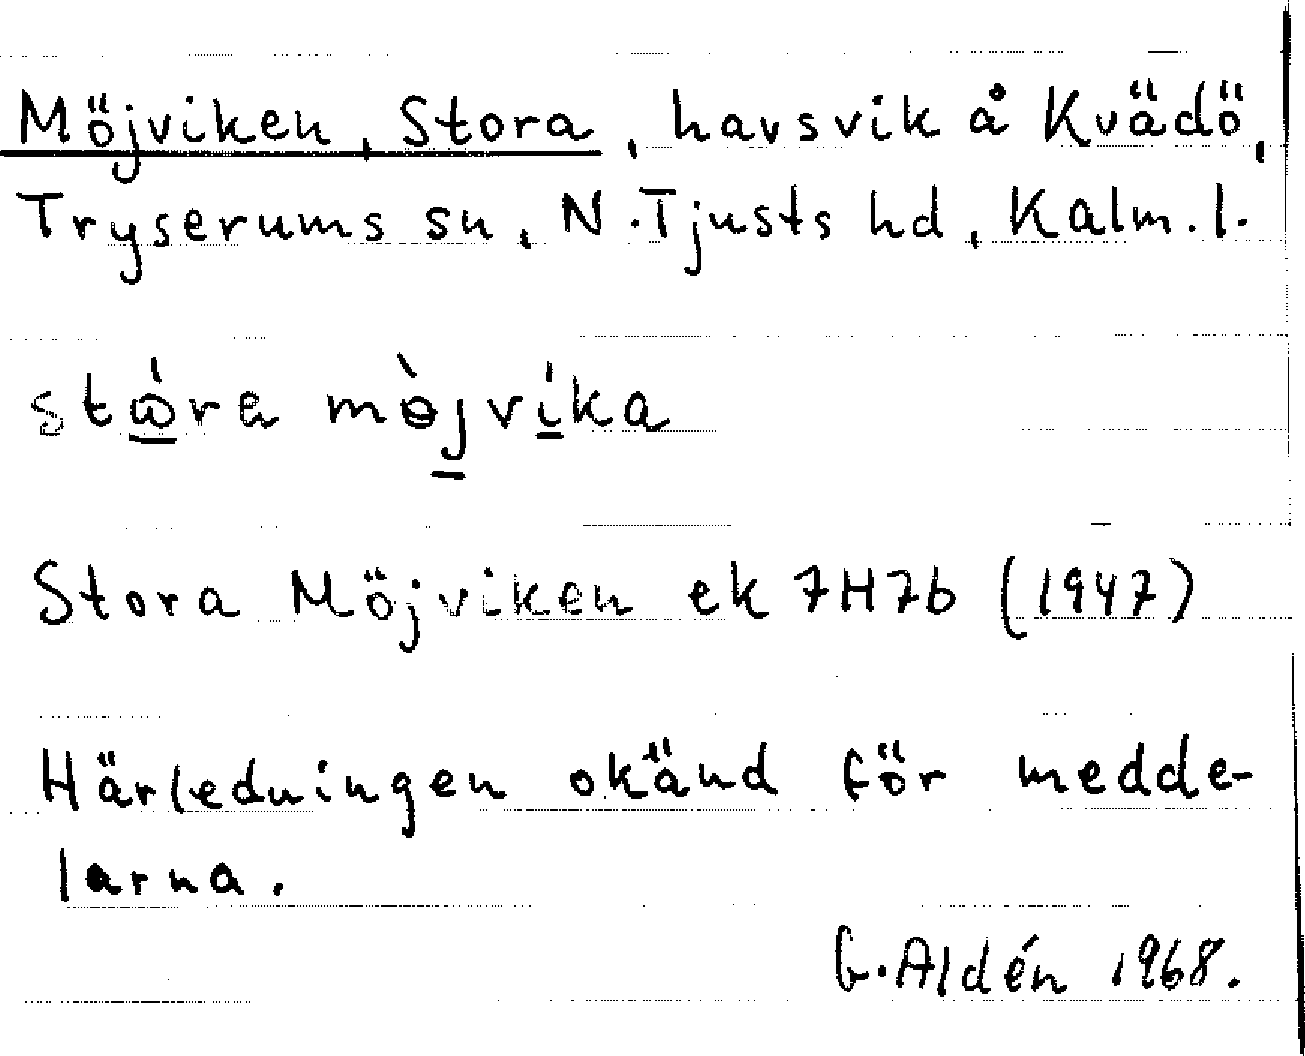 Möjviken, Stora, havsvik å Kvädö,
Tryserums sn, N. Tjusts hd, Kalm. l.
stώ̲ra mɵ̀j̲ví̲ka
Stora Möjviken ek 7H7b (1947)
Härledningen okänd för medde-
larna.
G. Aldén 1968.